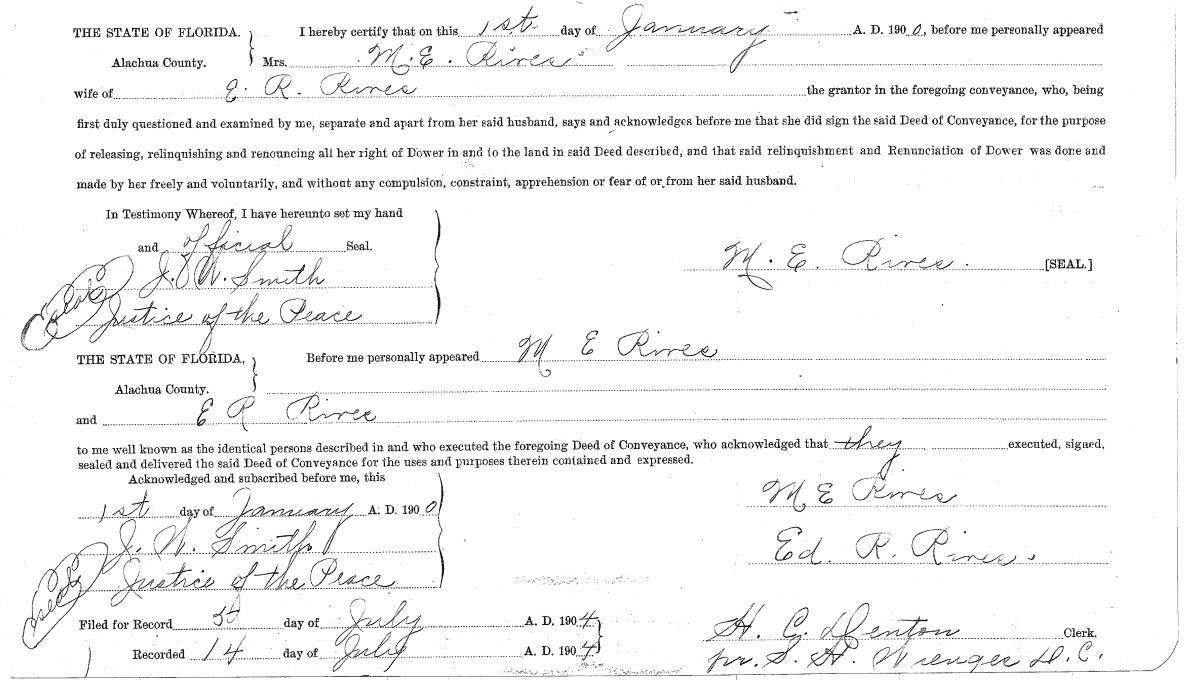 THE STATE OF FLORIDA. I hereby certify that on this 1st day of January A. D. 1900, before me personally appeared
Alachua County. Mrs. M. E. Rives
wife of E. R. Rives the grantor in the foregoing conveyance, who, being
first duly questioned and examined by me, separate and apart from her said husband, says and acknowledges before me that she did sign the said Deed of Conveyance, for the purpose
of releasing, relinquishing and renouncing all her right of Dower in and to the land in said Deed described, and that said relinquishment and Renunciation of Dower was done and
made by her freely and voluntarily, and without any compulsion, constraint, apprehension or fear of or from her said husband.
In Testimony Whereof, I have hereunto set my hand
and official Seal.
M. E. Rives. [SEAL.]
J. W. Smith
Seal
Justice of the Peace
THE STATE OF FLORIDA, Before me personally appeared M E Rives
Alachua County.
and E R Rives
to me well known as the identical persons described in and who executed the foregoing Deed of Conveyance, who acknowledged that they executed, signed,
sealed and delivered the said Deed of Conveyance for the uses and purposes therein contained and expressed.
Acknowledged and subscribed before me, this
M E Rives
1st day of January A. D. 1900
J. W. Smith
Ed. R. Rives.
Seal
Justice of the Peace
Filed for Record day of July A. D. 1904
H. C. Denton Clerk.
Recorded 14 day of July A. D. 1904
pr. S. H. D. C.